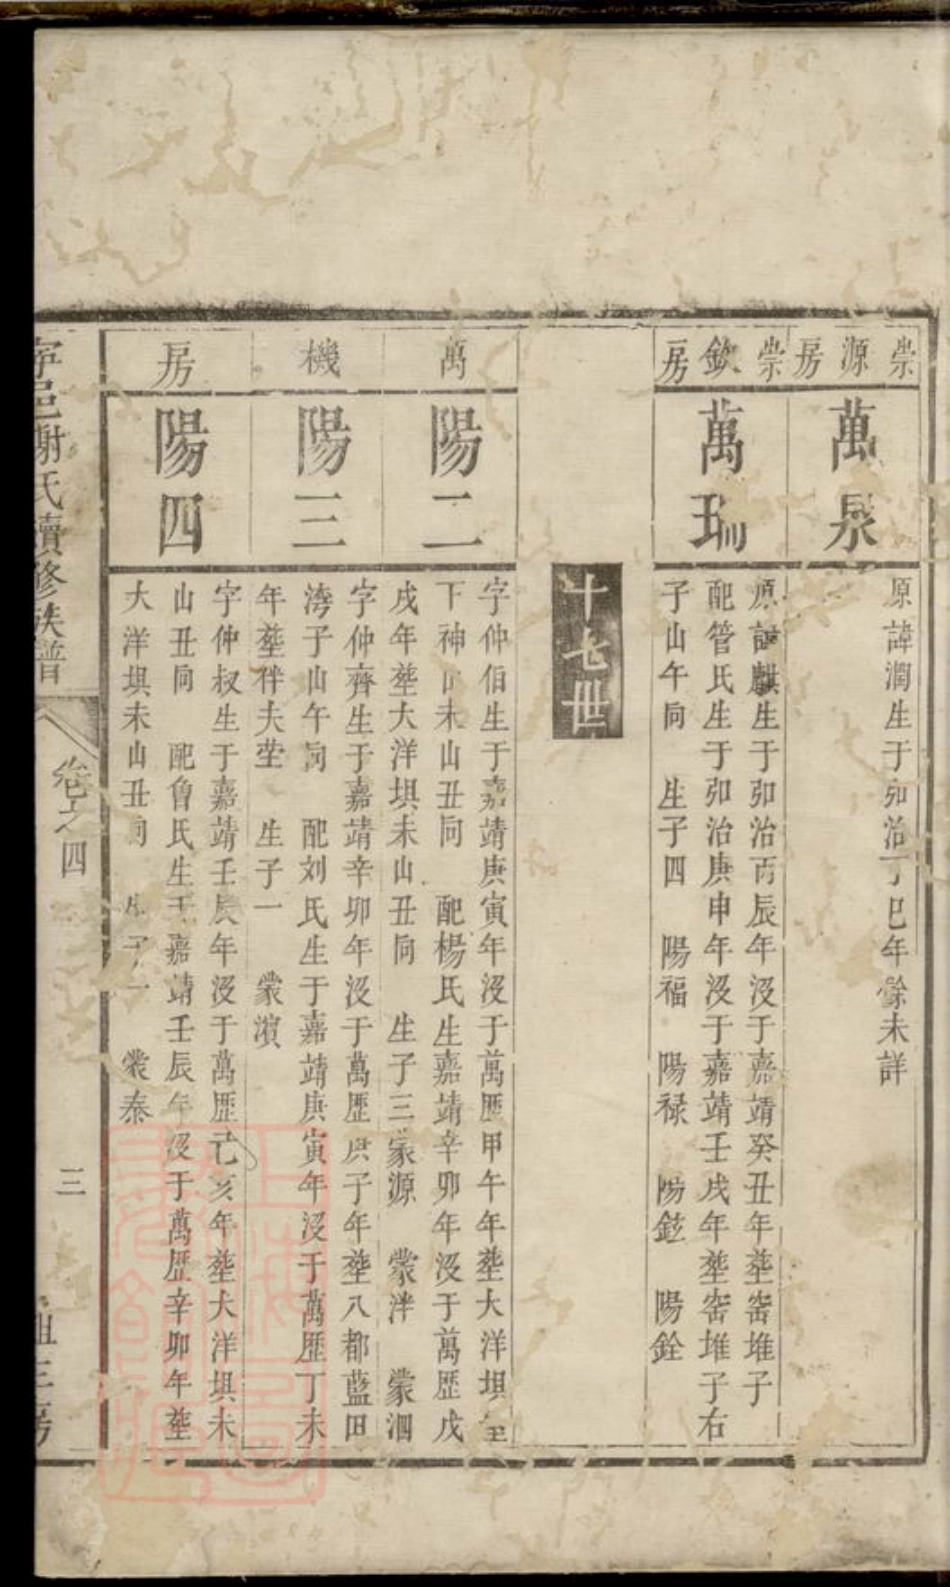 崇源房
萬泉
原諱潤生于卯治丁巳年餘未詳
崇欽房
萬瑞
原諱麒生于卯治丙辰年没于嘉靖癸丑年塟窑堆子
配管氏生于卯治庚申年没于嘉靖壬戌年塟窑堆子右
子山午向 生子四 陽福 陽禄 陽鉉 陽銓
十七世
萬機房
陽二
字仲伯生于嘉靖庚寅年没于萬歷甲午年塟大洋垻
下神 未山丑向 配楊氏生嘉靖辛卯年没于萬歷戊
戌年塟大洋垻未山丑向 生子三 蒙源 蒙泮 蒙泗
陽三
字仲齊生于嘉靖辛卯年没于萬歷庚子年塟八都藍田
湾子山午向 配刘氏生于嘉靖庚寅年没于萬歷丁未
年塟伴夫塋 生子一 蒙濱
陽四
字仲叔生于嘉靖壬辰年没于萬歷己亥年塟大洋垻未
山丑向 配魯氏生于嘉靖壬辰年没于萬歷辛卯年塟
大洋垻未山丑向 生子一 裳泰
謝氏續修族譜
卷之四
三